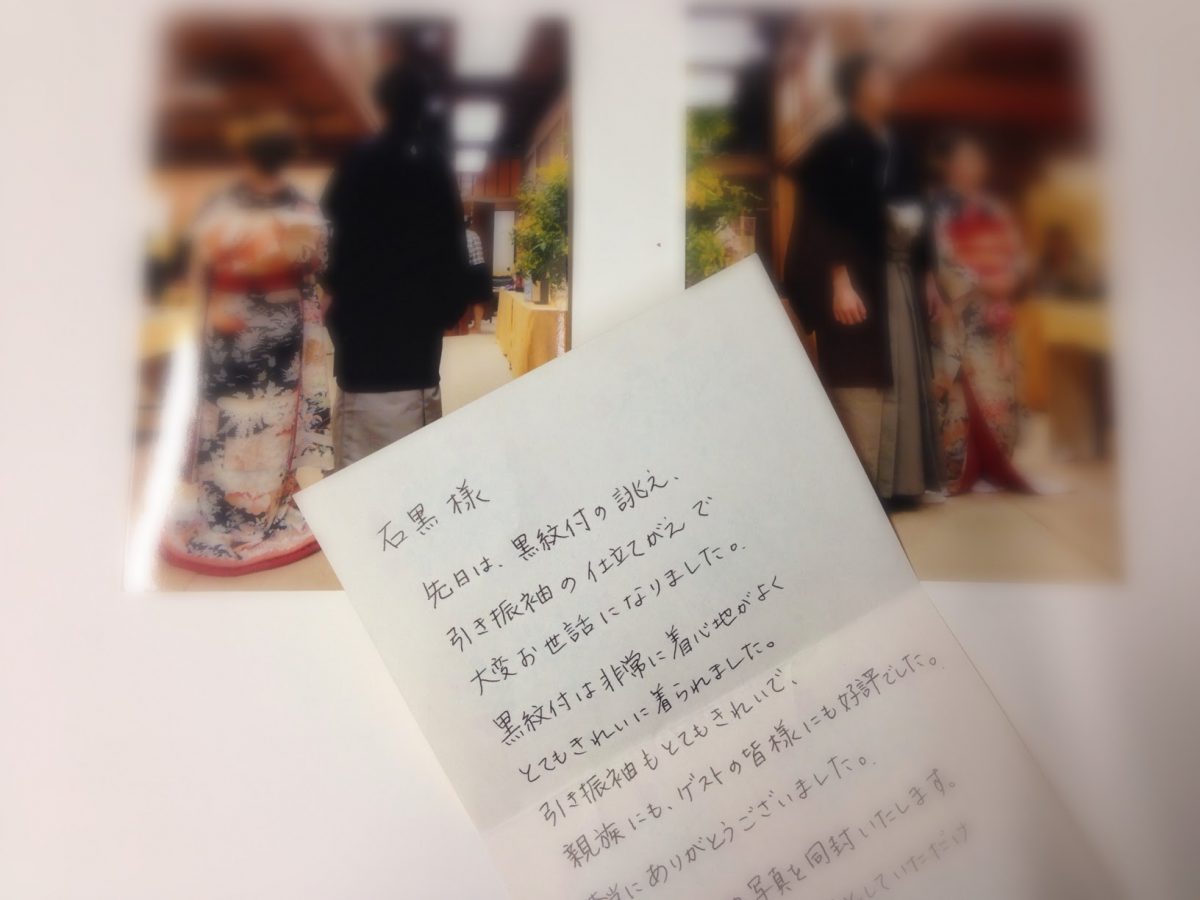 石黒様
先日は、黒紋付の誂え、
引き振袖の仕立てがえで
大変お世話になりました。
黒紋付は非常に着心地がよく
とてもきれいに着られました。
引き振袖もとてもきれいで、
親族にも、ゲストの皆様にも好評でした。
当にありがとうございました。
写真を同封いたします。
していただけ